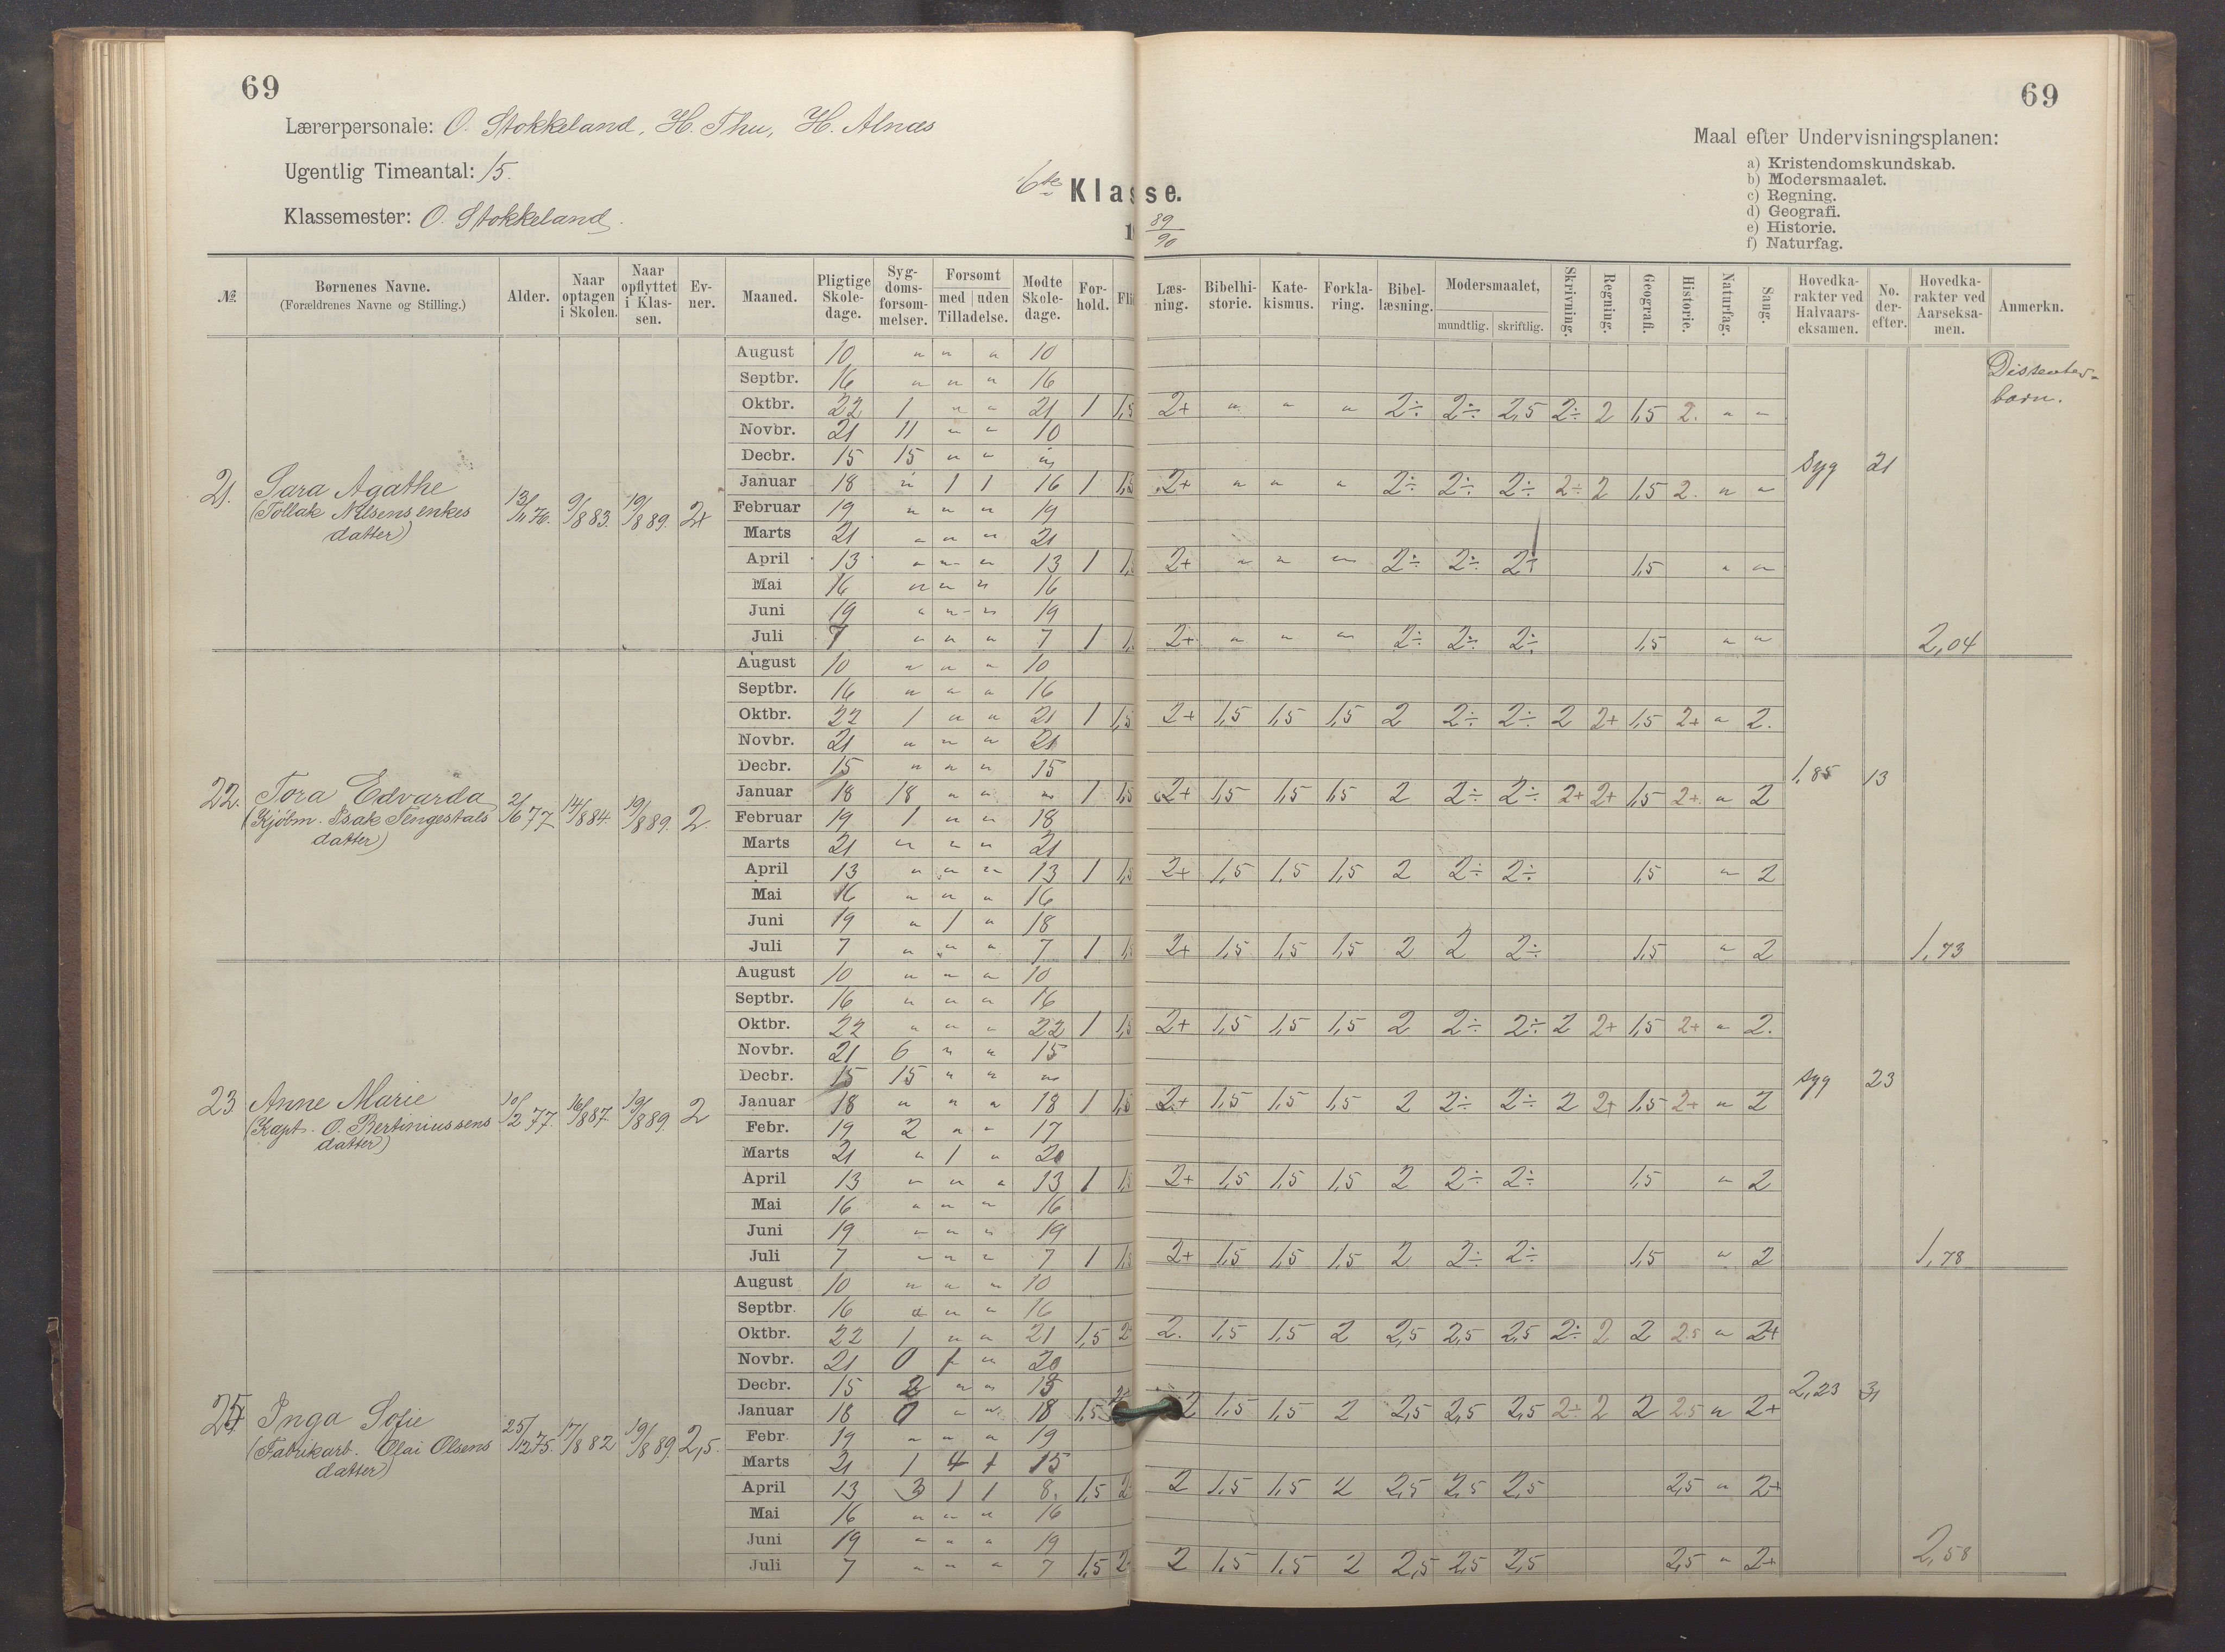 69
69
Lærerpersonale: O. Stokkeland, H. Thu, H. Alnæs
Maal efter Undervisningsplanen:
Ugentlig Timeantal: 15.
a) Kristendomskundskab.
b) Modersmaalet.
c) Regning.
d) Geografi.
e) Historie.
f) Naturfag.
6te Klasse.
Klassemester: O. Stokkeland.
1 89/90
№ Børnenes Navne. (Forældrenes Navne og Stilling.) Alder. Naar optagen i Skolen. Naar opflyttet i Klassen. Evner. Maaned. Pligtige Skoledage. Sygdomsforsommelser. Forsømt med uden Tilladelse. Mødte Skoledage. Forhold. Fli Læsning. Bibelhistorie. Katekismus. Forklaring. Bibellæsning. Modersmaalet, mundtlig. skriftlig. Skrivning. Regning. Geografi. Historie. Naturfag. Sang. Hovedkarakter ved Halvaarseksamen. No. derefter. Hovedkarakter ved Aarseksamen. Anmerkn.
21. Sara Agathe
(Tollak Nilsens enkes
datter)
13/11 76. 9/8 83. 19/8 89. 2+
August 10 " " " 10
Septbr. 16 " " " 16
Oktbr. 22 1 " " 21 1 1,5 2+ " " " 2÷ 2÷ 2,5 2÷ 2 1,5 2. " "
Novbr. 21 11 " " 10
Decbr. 15 15 " " "
Januar 18 " 1 1 16 1 1,5 2+ " " " 2÷ 2÷ 2÷ 2÷ 2 1,5 2. " "
Februar 19 " " " 19
Marts 21 " " " 21
April 13 " " " 13 1 1, 2+ " " " 2÷ 2÷ 2÷ 1,5 " "
Mai 16 " " " 16
Juni 19 " " " 19
Juli 7 " " " 7 1 1, 2+ " " " 2÷ 2÷ 2÷ 1,5 " "
Syg 21 2,04
Dissenter-
barn.
22. Tora Edvarda
(Kjøbm. Isak Tengesdals
datter)
2/6 77 14/8 84. 19/8 89. 2.
August 10 " " " 10
Septbr. 16 " " " 16
Oktbr. 22 1 " " 21 1 1,5 2+ 1,5 1,5 1,5 2 2÷ 2÷ 2 2+ 1,5 2+ " 2.
Novbr. 21 " " " 21
Decbr. 15 " " " 15
Januar 18 18 " " " 1 1,5 2+ 1,5 1,5 1,5 2 2÷ 2÷ 2+ 2+ 1,5 2+ " 2
Februar 19 1 " " 18
Marts 21 " " " 21
April 13 " " " 13 1 1,5 2+ 1,5 1,5 1,5 2 2÷ 2÷ 1,5 " 2
Mai 16 " " " 16
Juni 19 " 1 " 18
Juli 7 " " " 7 1 1,5 2+ 1,5 1,5 1,5 2 2 2÷ 1,5 " 2
1,85 13 1,73
23 Anne Marie
(Kapt. O. Bertiniussens
datter)
10/2 77. 16/8 87. 19/8 89. 2
August 10 " " " 10
Septbr. 16 " " " 16
Oktbr. 22 " " " 22 1 1,5 2+ 1,5 1,5 1,5 2 2÷ 2÷ 2 2+ 1,5 2+ " 2.
Novbr. 21 6 " " 15
Decbr. 15 15 " " "
Januar 18 " " " 18 1 1,5 2+ 1,5 1,5 1,5 2 2÷ 2÷ 2 2+ 1,5 2+ " 2
Febr. 19 2 " " 17
Marts 21 " 1 " 20
April 13 " " " 13 1 1,5 2+ 1,5 1,5 1,5 2 2÷ 2÷ 1,5 " 2
Mai 16 " " " 16
Juni 19 " " " 19
Juli 7 " " " 7 1 1,5 2+ 1,5 1,5 1,5 2 2÷ 2÷ 1,5 " 2
Syg 23 1,78
25 Inga Sofie
(Fabrikarb. Olai Olsens
datter)
25/12 75. 17/8 82 19/8 89. 2,5.
August 10 " " " 10
Septbr. 16 " " " 16
Oktbr. 22 1 " " 21 1,5 2 2. 1,5 1,5 2 2,5 2,5 2,5 2÷ 2 2 2,5 " 2+
Novbr. 21 0 1 " 20
Decbr. 15 2 " " 13
Januar 18 0 " " 18 1,5 2 1,5 1,5 2 2,5 2,5 2,5 2÷ 2 2 2,5 " 2+
Febr. 19 " " " 19
Marts 21 1 4 1 15
April 13 3 1 1 8. 1,5 2 2 1,5 1,5 2 2,5 2,5 2,5 2,5 " 2+
Mai 16 " " " 16
Juni 19 " " " 19
Juli 7 " " " 7 1,5 2 2 1,5 1,5 2 2,5 2,5 2,5 2,5 " 2+
2,23 31 2,58